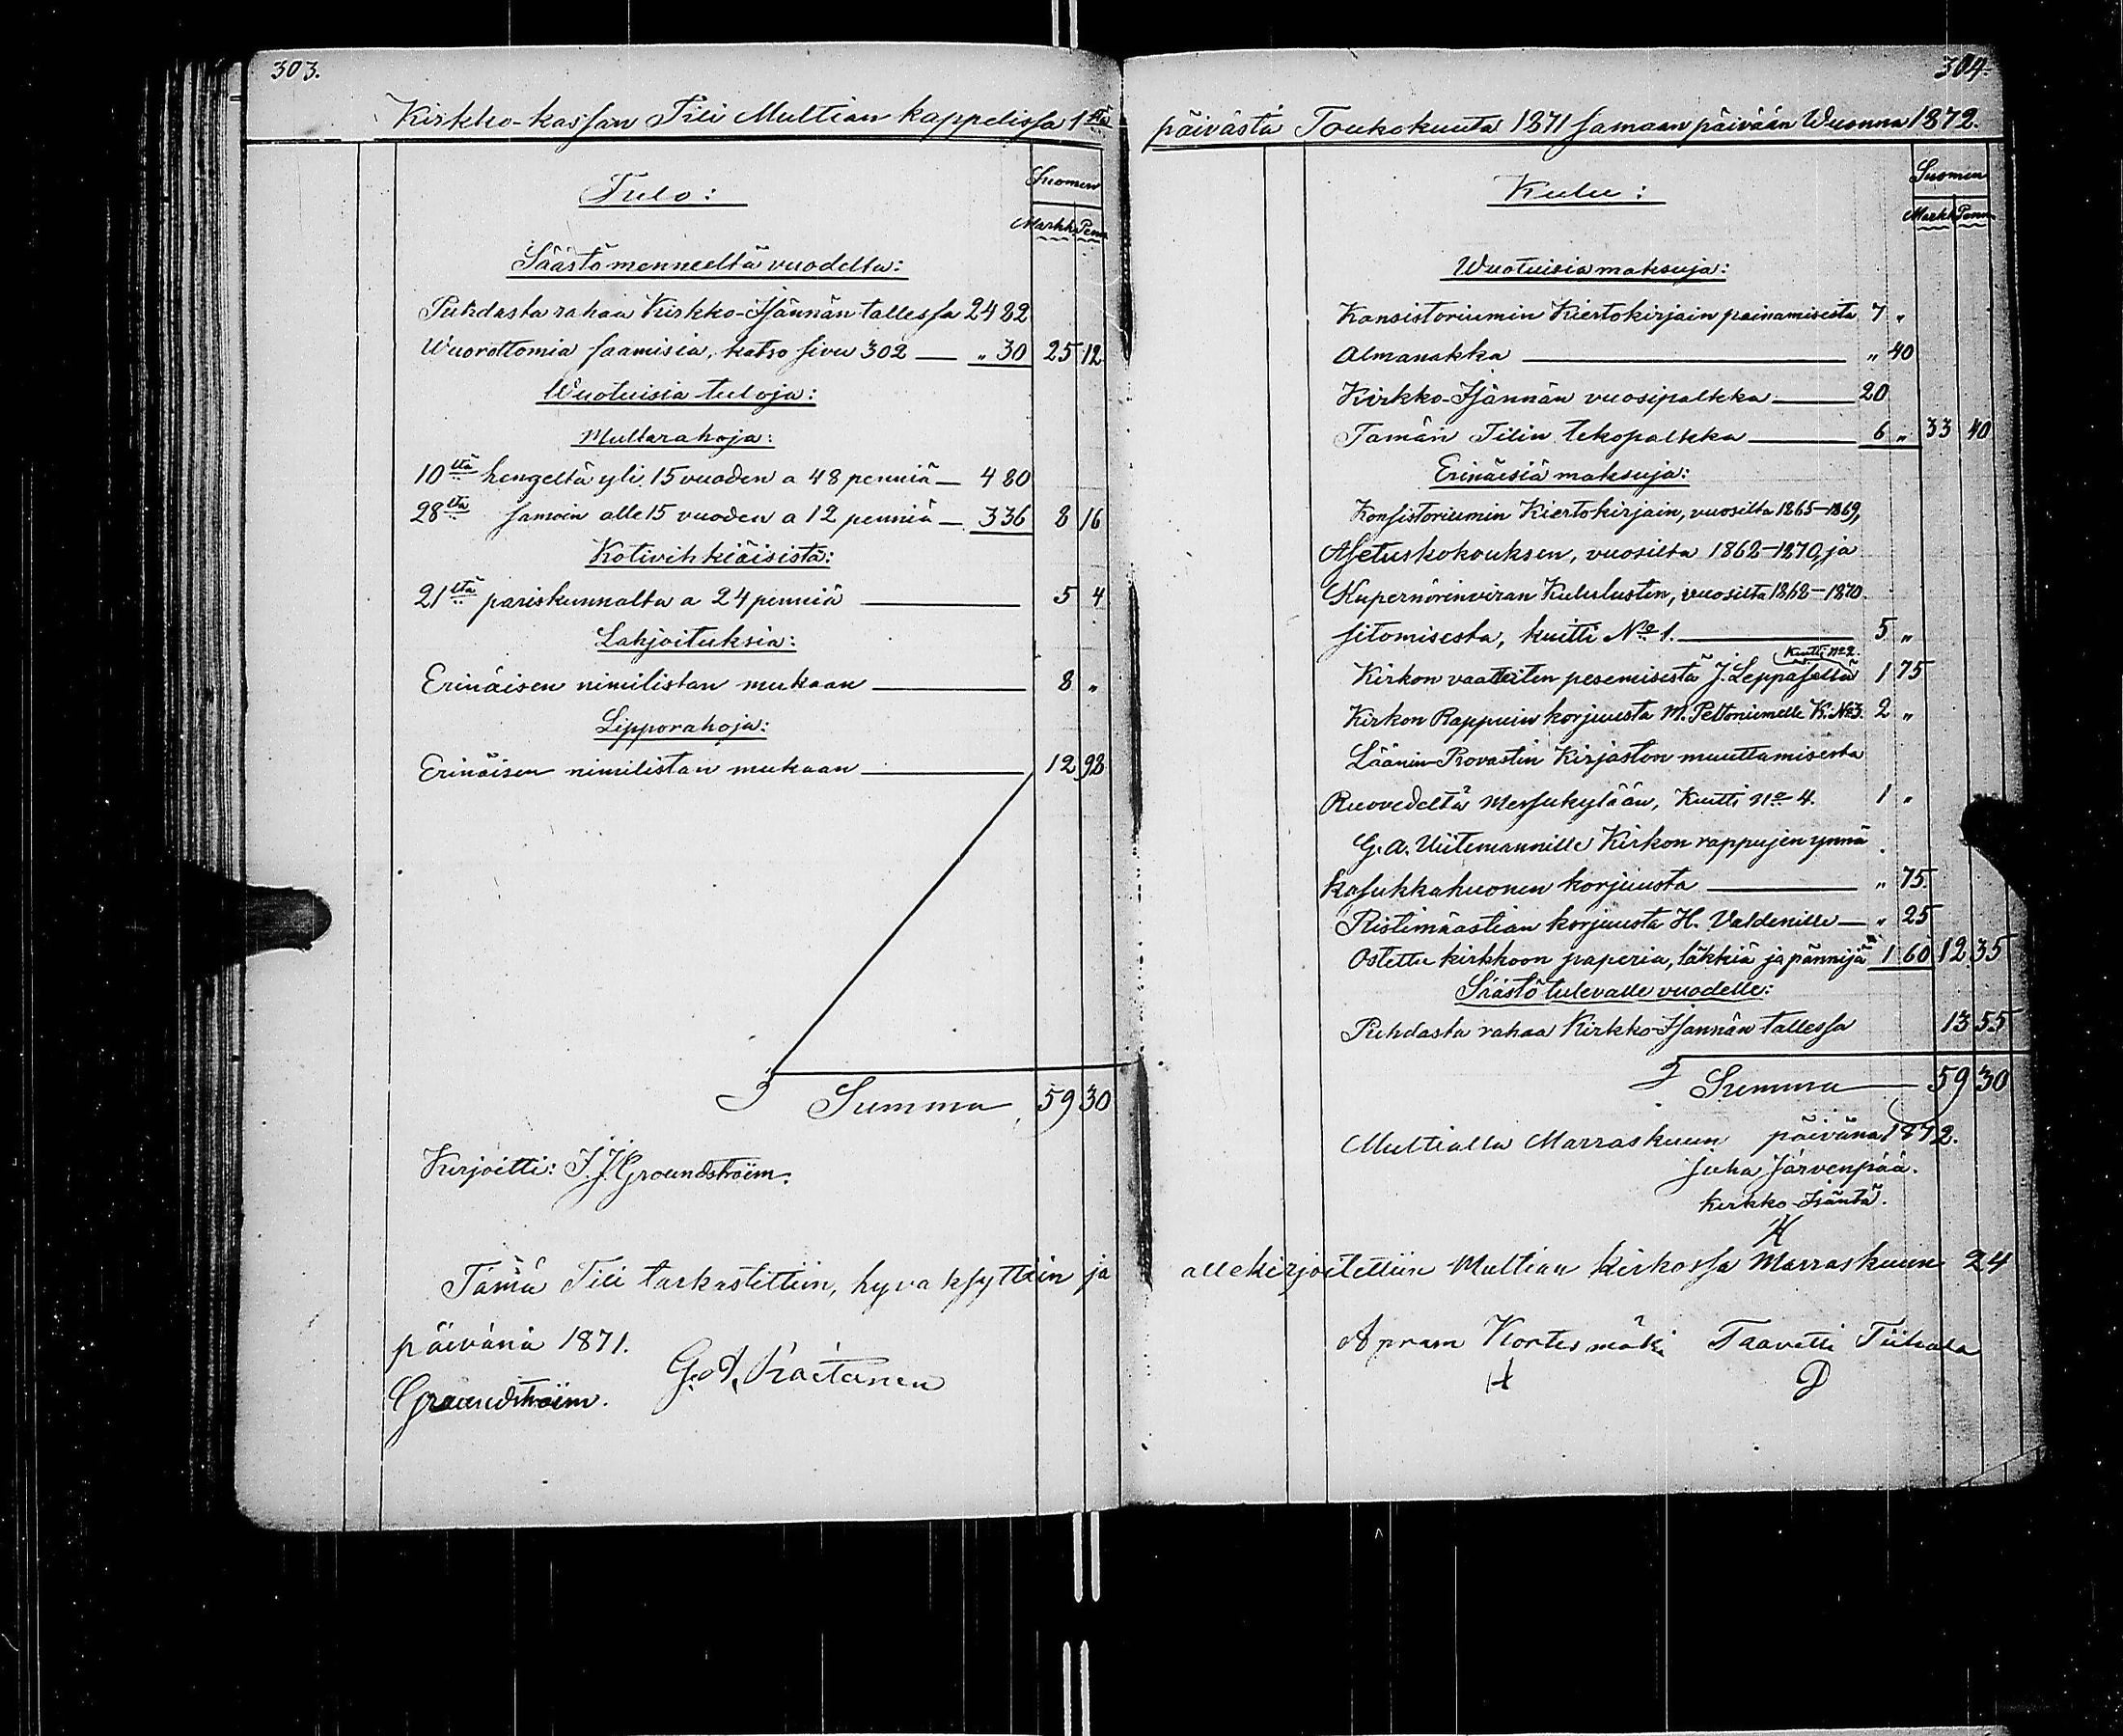 303.
Kirkko-kassan Tili Multian kappelissa 1stä
Suomen
Tulo:
Markk. Penn.
Säästö menneeltä vuodelta:
Puhdasta rahaa Kirkko-Isännän tallessa 24 82
Wuorottomia saamisia, katso sivu 302 — „ 30 25 12
Wuotuisia tuloja:
Multarahoja:
10ltä hengeltä yli 15 vuoden a 48 penniä — 4 80
28lta samoin alle 15 vuoden a 12 penniä — 3 36 8 16
Kotivihkiäisistä:
21ltä pariskunnalta a 24 penniä — 5 4
Lahjoituksia:
Erinäisen nimilistan mukaan — 8 „
Lipporahoja:
Erinäisen nimilistan mukaan — 12 98
Summa 59 30
Kirjoitti: J. J. Groundstroim.
Tämä Tili tarkastettiin, hyvaksyttiin ja
päivänä 1871.
Groundstroim. G. A.
304.
päivästä Toukokuuta 1871 samaan päivään Wuonna 1872.
Suomen
Kulu:
Markk. Penn.
Wuotuisia maksuja:
Konsistoriumin Kiertokirjain painamisesta 7 „
Almanakka — „ 40
Kirkko-Isännän vuosipalkka — 20
Tämän Tilin tekopalkka — 6 „ 33 40
Erinäisiä maksuja:
Konsistoriumin Kiertokirjain, vuosilta 1865–1869,
Asetuskokouksen, vuosilta 1862–1870, ja
Kupernörinviran Kululusten, vuosilta 1868–1870.
sitomisesta, kuitti No 1. — 5 „
Kuitti No 2.
Kirkon vaatteiten pesemisestä J. Leppäsellä 1 75
Kirkon Rappuin korjuusta M. Peltoniemelle K. No 3. 2 „
Läänin-Provastin Kirjaston muuttamisesta
Ruovedeltä Messukylään, Kuitti No 4. 1 „
G. A. Uitemannille Kirkon rappujen ynnä
kasukkahuonen korjuusta — „ 75.
Ristimäastian korjuusta H. Valdenille — „ 25
Ostettu kirkkoon paperia, läkkiä ja pännijä 1 60 12 35
Säästö tulevalle vuodelle:
Puhdasta rahaa Kirkko-Isännän tallessa 13 55
Summa — 59 30
Multialla Marraskuun päivänä 1872.
Juha Järvenpää.
Kirkko-Isäntä.
allekirjoitettiin Multian kirkossa Marraskuun 24
Apram Kortesmäki Taavetti Tiihala